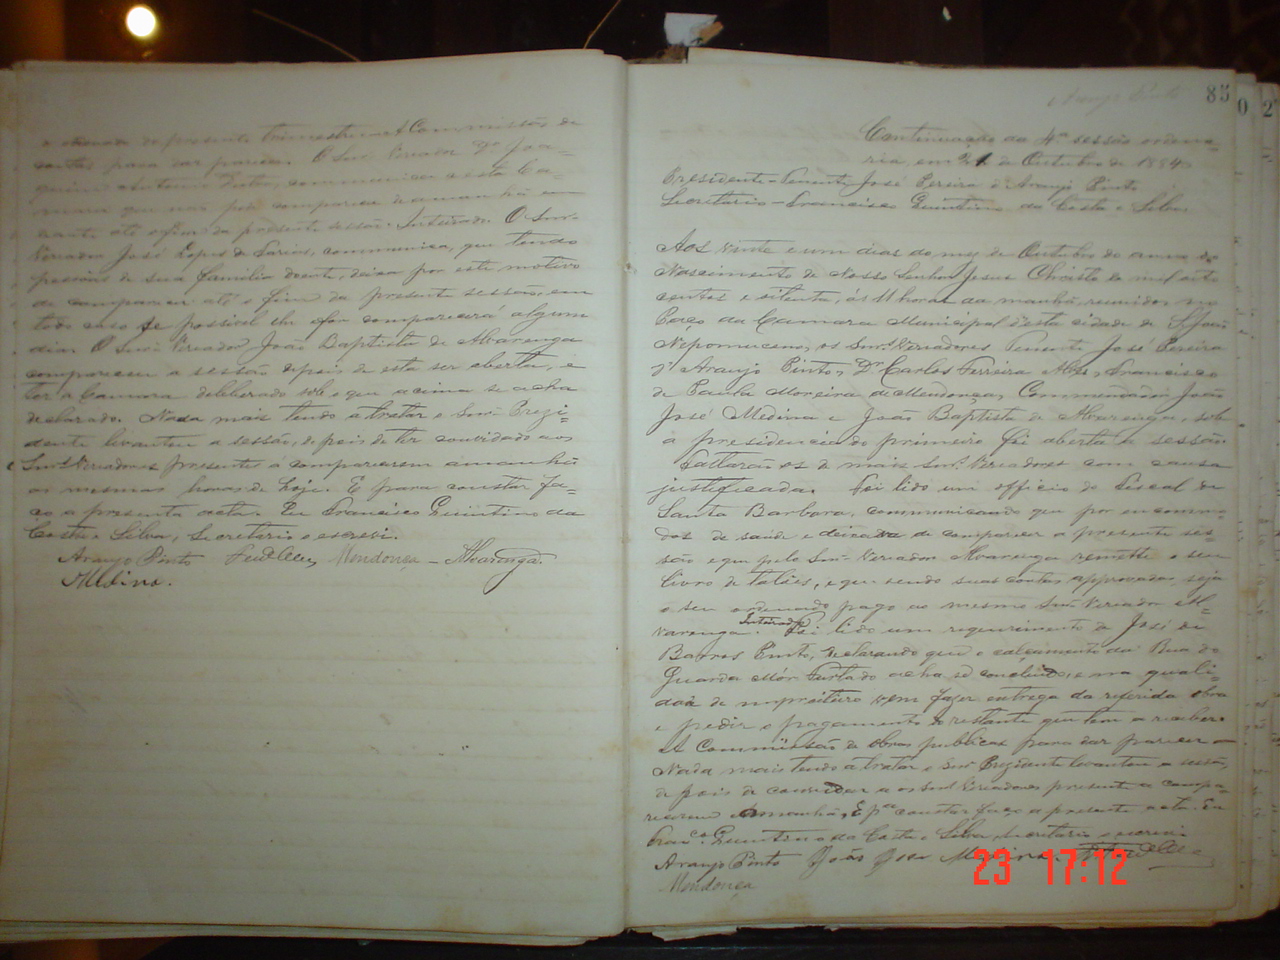 e ordenado do presente trimestre. A Commissão de
contas para dar parecer. O Snr. Vereador Dr. Joa-
quim Antonio Dutra, communica a esta Ca-
mara que não pode comparecer de amanhã em
diante até o fim da presente sessão. Inteirada. O Snr.
Vereador José Lopes de Faria, communica, que tendo
pessoas de sua familia doente, deixa por este motivo
de comparecer até o fim da presente sessão, em
todo caso se possivel lhe for comparecerá algum
dia. O Snr. Vereador João Baptista de Alvarenga
compareceu a sessão depois de esta ser aberta, e
ter a Camara deliberado sobre o que acima se acha
declarado. Nada mais tendo a tratar o Snr. Prezi-
dente levantou a sessão, depois de ter convidado aos
Snrs. Vereadores presentes a comparecerem amanhã
as mesmas horas de hoje. E para constar fa-
ço a presente acta. Eu Francisco Quintino da
Costa e Silva, Secretario o escrevi.
Araujo Pinto Mendonça - Alvarenga.
Medina.
Araujo Pinto
85
Continuação da 4ª sessão ordina-
ria, em 21 de Outubro de 1884.
Presidente - Tenente José Pereira d'Araujo Pinto
Secretario - Francisco Quintino da Costa e Silva
Aos vinte e um dias do mez de Outubro do anno do
Nascimento de Nosso Senhor Jesus Christo de mil oito
centos e oitenta, ás 11 horas da manhã, reunidos no
Paço da Camara Municipal desta cidade de S. João
Nepomuceno, os Snrs. Vereadores Tenente José Pereira
d'Araujo Pinto, Dr. Carlos Ferreira Alves, Francisco
de Paula Moreira de Mendonça, Commendador João
José Medina e João Baptista de Alvarenga, sob
a presidencia do primeiro foi aberta a sessão.
Faltarão os de mais Snrs. Vereadores com causa
justificada. Foi lido um officio do Fiscal de
Santa Barbara, communicando que por encommo-
dos de saude deixava de comparecer a presente ses-
são e que pelo Snr. Vereador Alvarenga remette o seu
livro de talões, e que sendo suas contas approvadas, seja
o seu ordenado pago ao mesmo Snr. Vereador Al-
varenga. Inteirada. Foi lido um requerimento de José de
Barros Pinto, declarando que o calçamento da Rua do
Guarda Mór Furtado acha se concluido, e na quali-
dade de impreiteiro vem fazer entrega da referida obra
e pedir o pagamento do restante que tem a receber.
A Commissão de obras publicas para dar parecer -
Nada mais tendo a tratar o Snr. Prezidente levantou a sessão,
depois de convidar a os Snrs. Vereadores presente a compa-
recerem amanhã, E pª constar faço a presente acta. Eu
Franco. Quintino da Costa e Silva, Secretario o escrevi
Araujo Pinto João José Medina.
Mendonça
23 17:12